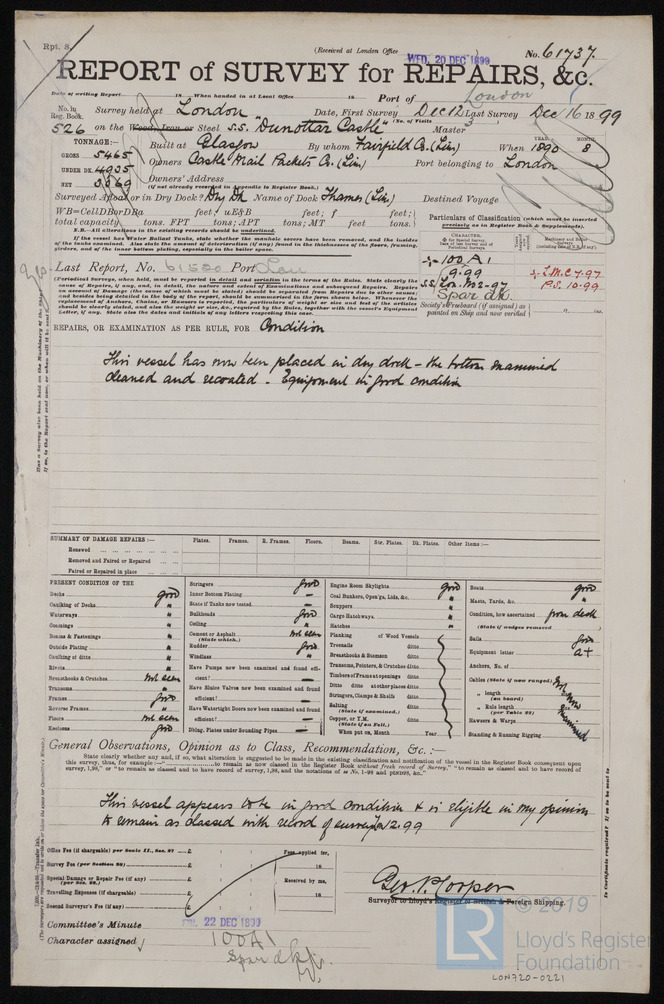 Rpt. 8.
(Received at London Office
WED. 20 DEC 1899
No. 61737.
REPORT of SURVEY for REPAIRS, &c.
Date of writing Report 18 When handed in at Local Office 18 Port of London
No. in Reg. Book.
Survey held at London Date, First Survey Dec 12 Last Survey Dec 16 1899
(No. of Visits 3
526 on the Wood, Iron or Steel S.S. "Dunottar Castle" Master
TONNAGE:—
GROSS 5465
UNDER DK. 4935
NET 3069
Built at Glasgow By whom Fairfield Co. (Lim) When 1890 8
YEAR. MONTH.
Owners Castle Mail Packets Co. (Lim) Port belonging to London
Owners' Address
(if not already recorded in Appendix to Register Book.)
Surveyed Afloat or in Dry Dock? Dry Dk Name of Dock Thames (Lim) Destined Voyage
WB=CellDBorDBa feet; uE&B feet; f feet;
total capacity tons; FPT tons; APT tons; MT feet tons.
N.B.—All alterations in the existing records should be underlined.
If the vessel has Water Ballast Tanks, state whether the manhole covers have been removed, and the insides
of the tanks examined. Also state the amount of deterioration (if any) found in the thicknesses of the floors, framing,
girders, and of the inner bottom plating, especially in the boiler space.
Particulars of Classification (which must be inserted
precisely as in Register Book & Supplements).
100A1
9.99
S.S. Lon. No2-97
Spar dk.
L.M.C. 7.97
B.S. 10.99
Society's Freeboard (if assigned) as
painted on Ship and now verified
Last Report, No. 61500 Port Lon
(Periodical Surveys, when held, must be reported in detail and seriatim in the terms of the Rules. State clearly the
cause of Repairs, if any, and, in detail, the nature and extent of Examinations and subsequent Repairs. Repairs
on account of Damage (the cause of which must be stated) should be separated from Repairs due to other causes;
and besides being detailed in the body of the report, should be summarized in the form shown below.
REPAIRS, OR EXAMINATION AS PER RULE, FOR Condition
This vessel has now been placed in dry dock – the bottom examined
cleaned and recoated. Equipment in good condition
SUMMARY OF DAMAGE REPAIRS:— Plates. Frames. R. Frames. Floors. Beams. Str. Plates. Dk. Plates. Other Items:—
Renewed
Removed and Faired or Repaired
Faired or Repaired in place
PRESENT CONDITION OF THE
Decks good
Caulking of Decks "
Waterways "
Coamings "
Beams & Fastenings "
Outside Plating "
Caulking of ditto "
Rivets "
Breasthooks & Crutches Not seen
Transoms "
Frames good
Reverse Frames "
Floors Not seen
Keelsons good
Stringers good
Inner Bottom Plating —
State if Tanks now tested —
Bulkheads good
Ceiling "
Cement or Asphalt Not seen
(State which.)
Rudder good
Windlass "
Have Pumps now been examined and found efficient? —
Have Sluice Valves now been examined and found efficient? —
Have Watertight Doors now been examined and found efficient? —
Dblng. Plates under Sounding Pipes —
Engine Room Skylights good
Coal Bunkers, Open'gs, Lids, &c. "
Scuppers "
Cargo Hatchways "
Hatches "
Planking of Wood Vessels
Treenails ditto
Breasthooks & Stemson ditto
Transoms, Pointers, & Crutches ditto
Timbers of Frame at openings ditto
Ditto ditto at other places ditto
Stringers, Clamps & Shelfs ditto
Salting ditto
(State if examined.)
Copper, or Y.M. ditto
(State if on Felt.)
When put on, Month Year
Boats good
Masts, Yards, &c. "
Condition, how ascertained from deck
(State if wedges removed)
Sails good
Equipment letter a+
Anchors, No. of
Cables (State if now ranged) Not now
" length (on board)
" Rule length (per Table 22) Examined
Hawsers & Warps
Standing & Running Rigging
General Observations, Opinion as to Class, Recommendation, &c.:—
State clearly whether any, and if so, what alteration is suggested to be made in the existing classification and notification of the vessel in the Register Book consequent upon
this survey, thus, for example:—" to remain as now classed in the Register Book without fresh record of Survey," "to remain as classed and to have record of
survey, 1,98," or "to remain as classed and to have record of survey, 1,98, and the notations of ss No. 1-98 and pts&ND98, &c."
This vessel appears to be in good condition & is eligible in my opinion
to remain as classed with record of survey 12.99
Office Fee (if chargeable) per Scale II., Sec. 27 £
Survey Fee (per Section 28) £
Special Damage or Repair Fee (if any) £
(per Sec. 28.)
Travelling Expenses (if chargeable) £
Second Surveyor's Fee (if any) £
Fees applied for,
18
Received by me,
18
Geo. P. Cooper
Surveyor to Lloyd's Register of British & Foreign Shipping.
Committee's Minute FRI. 22 DEC 1899
Character assigned 100A1
Spar dk
© 2019
LR
Lloyd's Register
Foundation
LON720-0221